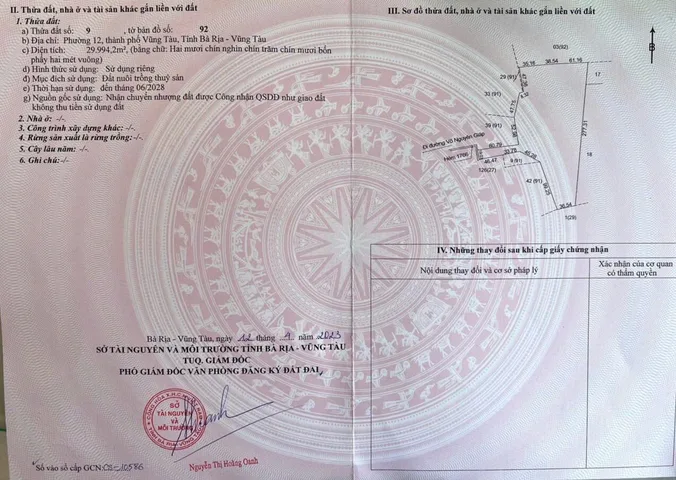 II. Thửa đất, nhà ở và tài sản khác gắn liền với đất
1. Thửa đất:
a) Thửa đất số: 9 , tờ bản đồ số: 92
b) Địa chỉ: Phường 12, thành phố Vũng Tàu, Tỉnh Bà Rịa - Vũng Tàu
c) Diện tích: 29.994,2m², (bằng chữ: Hai mươi chín nghìn chín trăm chín mươi bốn
phẩy hai mét vuông)
d) Hình thức sử dụng: Sử dụng riêng
đ) Mục đích sử dụng: Đất nuôi trồng thuỷ sản
e) Thời hạn sử dụng: đến tháng 06/2028
g) Nguồn gốc sử dụng: Nhận chuyển nhượng đất được Công nhận QSDĐ như giao đất
không thu tiền sử dụng đất
2. Nhà ở: -/-
3. Công trình xây dựng khác: -/-
4. Rừng sản xuất là rừng trồng: -/-
5. Cây lâu năm: -/-
6. Ghi chú:-/-
Bà Rịa - Vũng Tàu, ngày 12 tháng 1 năm 2023
SỞ TÀI NGUYÊN VÀ MÔI TRƯỜNG TỈNH BÀ RỊA - VŨNG TÀU
TUQ. GIÁM ĐỐC
PHÓ GIÁM ĐỐC VĂN PHÒNG ĐĂNG KÝ ĐẤT ĐAI
SỞ
TÀI NGUYÊN
VÀ
MÔI TRƯỜNG
Nguyễn Thị Hoàng Oanh
Số vào sổ cấp GCN:
III. Sơ đồ thửa đất, nhà ở và tài sản khác gắn liền với đất
B
03(92)
35.16 38.54 61.16
29 (91)
47.26
17
30 (91)
47.75
39 (91)
52.86
277.31
Đi đường Võ Nguyên Giáp
60.79
Hẻm 1766
33.78
45.47
9 (91)
126(27)
18
42 (91)
36.54
1(29)
IV. Những thay đổi sau khi cấp giấy chứng nhận
Nội dung thay đổi và cơ sở pháp lý
Xác nhận của cơ quan
có thẩm quyền